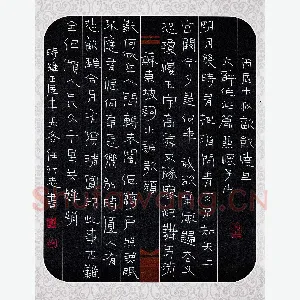 丙辰中秋歡飲達旦
大醉作此篇兼懷子由
明月幾時有把酒問青天不知天上
宮闕今夕是何年我欲乘風歸去又
恐瓊樓玉宇高處不勝寒起舞弄清
蘇東坡詞水調歌頭
影何似在人間轉朱閣低綺戶照無眠
不應有恨何事長向別時圓人有
悲歡離合月有陰晴圓缺此事古難
全但願人長久千里共嬋娟
時維壬辰十二月